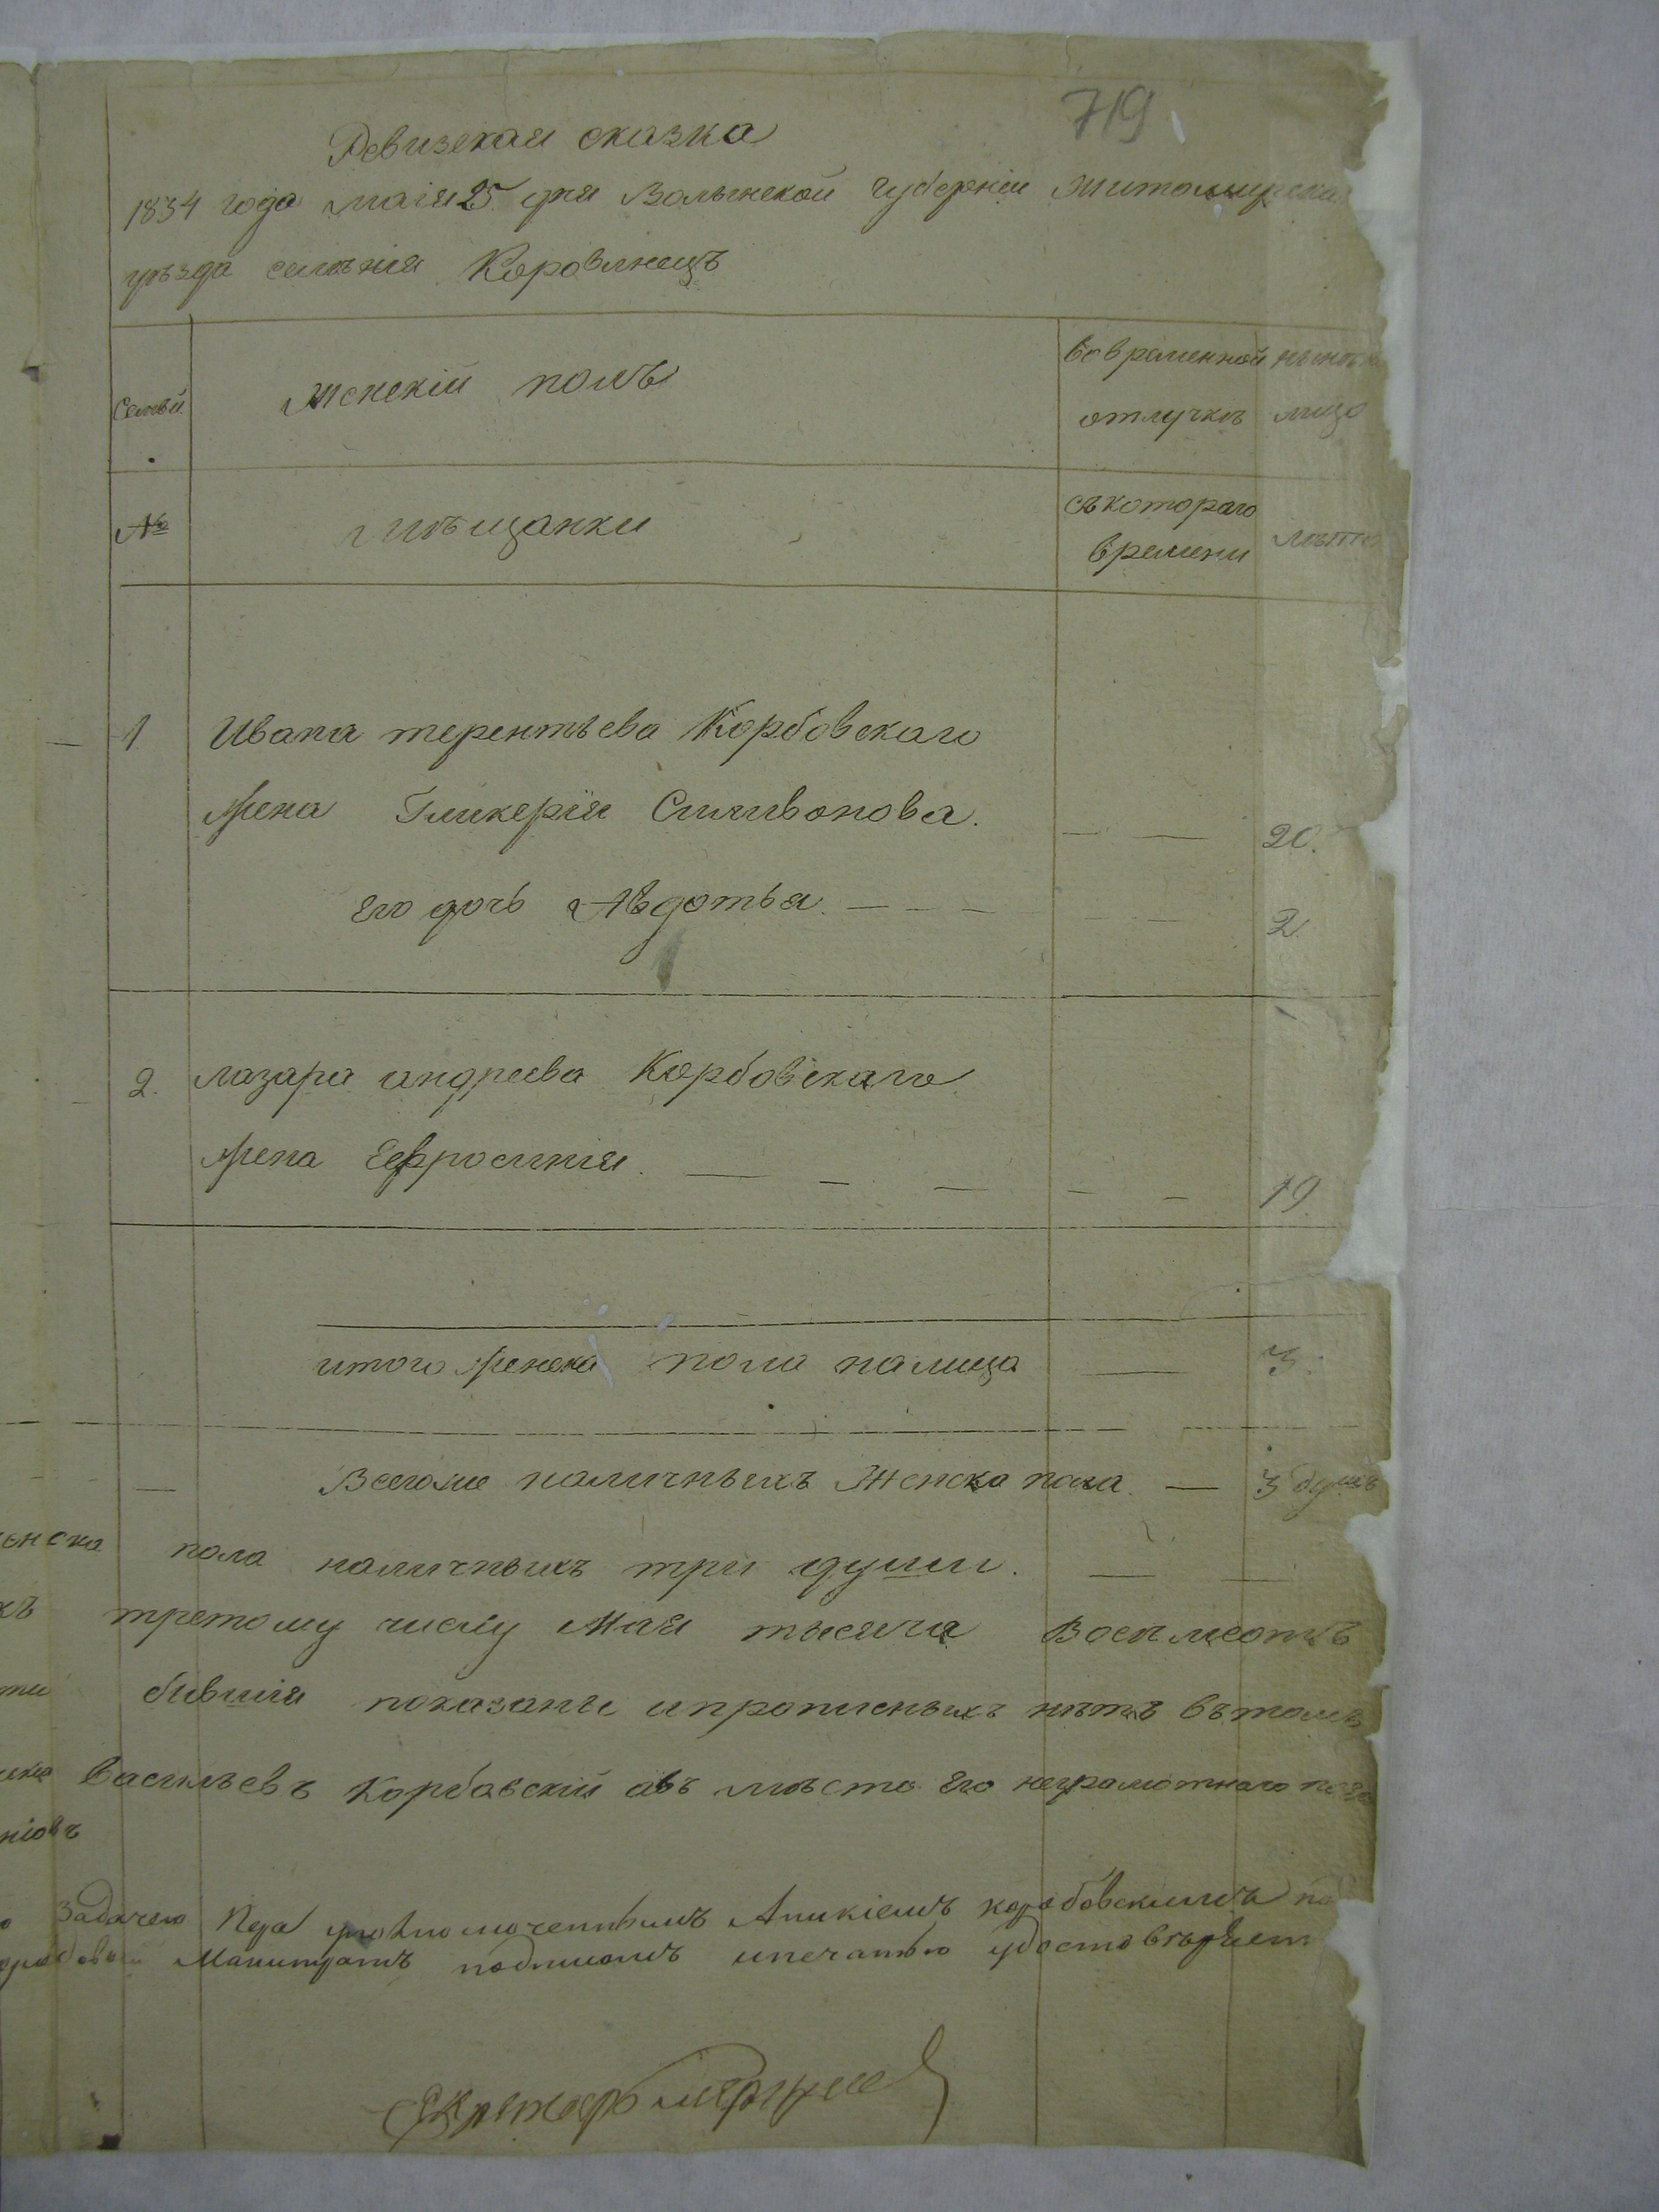 719
Ревизская сказка
1834 года маія 25 дня Волынской губерніи Житомирска
уѣзда селѣнія Коровинецъ
Семьи
Женскій полъ
Во временной
отлучкѣ
нынѣ на
лицо
№
мѣщанки
съ котораго
времени
лѣта
1 Ивана терентьева Корбовскаго
Жена Гликерія Силивонова. — — 20.
Его дочь Авдотья. — — — — — 2
2. лазара андреева Корбовскаго
Жена Ефросинія. — — — — — 19.
итого женска пола налицо — 3.
Всегоже наличныхъ Женска пола. — 3 душъ
женска пола наличныхъ три души. — —
хъ третому числу Мая тысяча Восемсотъ
бившія показаны ипрописныхъ нѣтъ вътомъ
Васильевъ Корбавскій авъ мѣсто его неграмотнаго
ніовъ
Задачею уполномоченнымъ Аникіемъ корбовскимъ
подписомъ ипечатью удостовѣряетъ